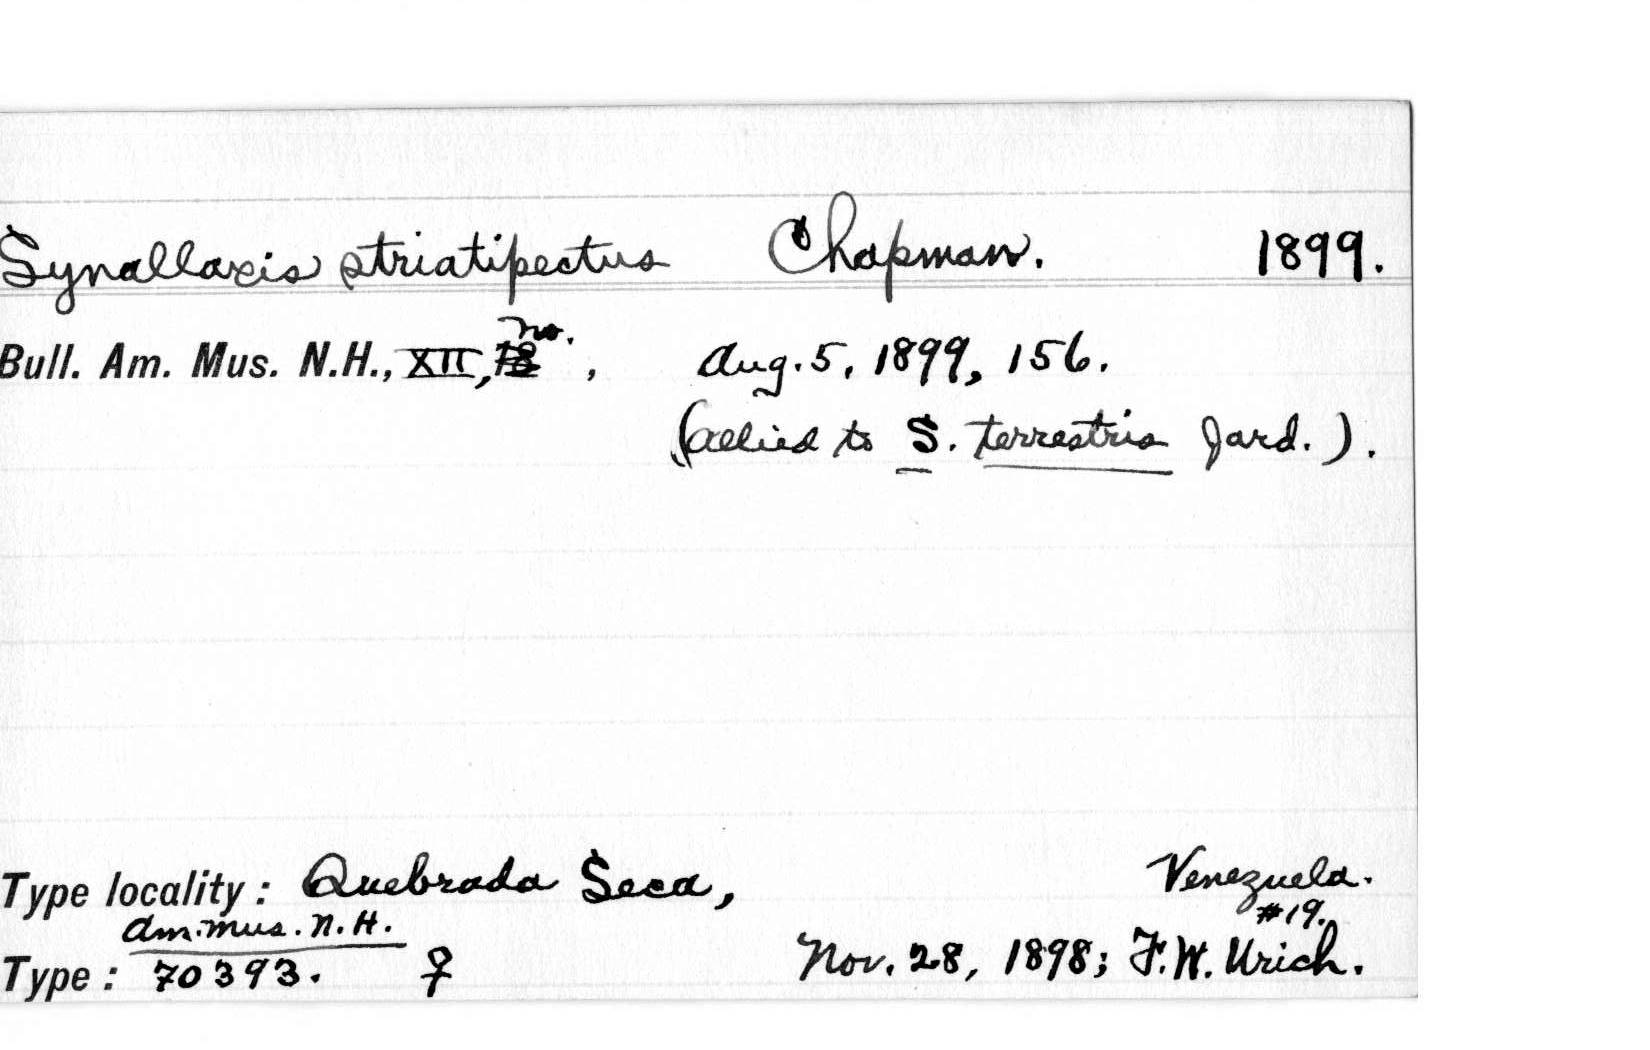 Synallaxis striatipectus Chapman. 1899.
no.
Bull. Am. Mus. N.H., XII, , Aug. 5, 1899, 156.
(allied to S. terrestris Jard.).
Type locality: Quebrada Seca, Venezuela.
Am. Mus. N.H. #19.
Type: 70393. ♀ Nov. 28, 1898; F.W. Urich.